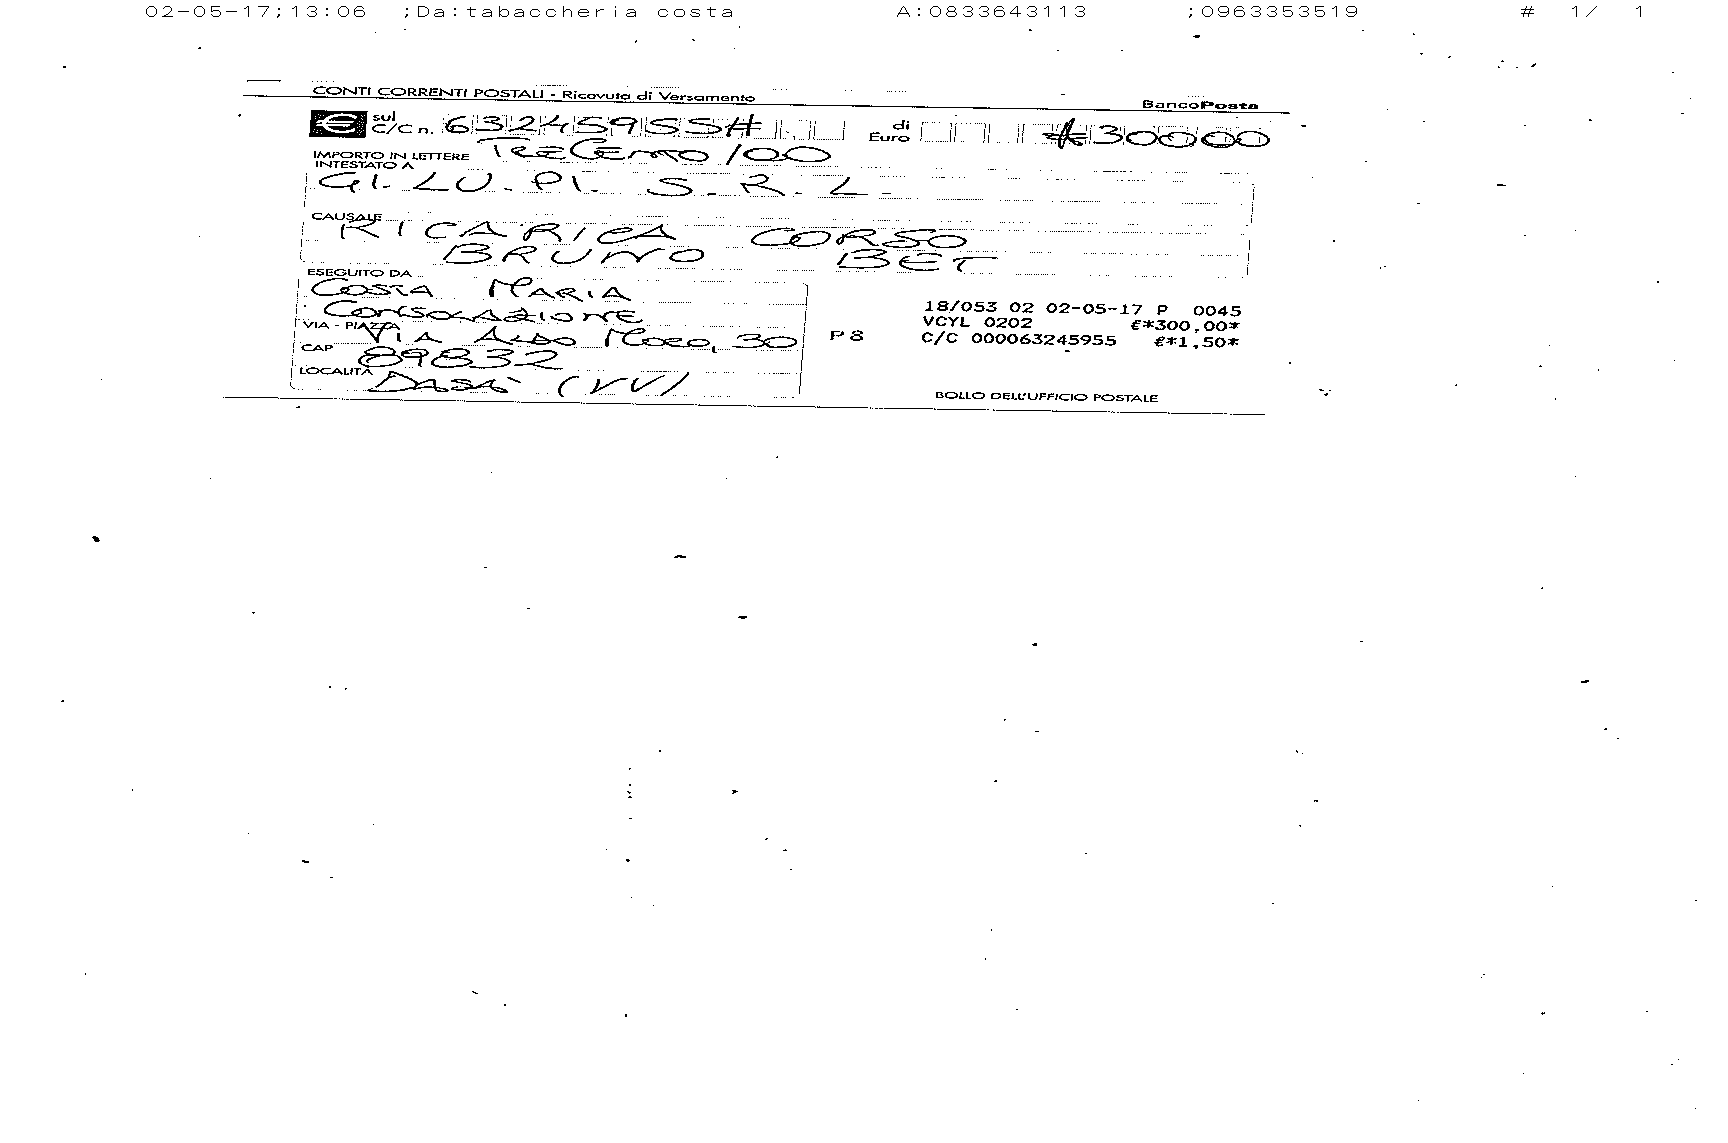 02-05-17;13:06 ;Da:tabaccheria costa A:0833643113 ;0963353519 # 1/ 1
CONTI CORRENTI POSTALI - Ricevuta di Versamento BancoPosta
€ sul C/C n. 63245955# di Euro #30000
IMPORTO IN LETTERE TRECENTO/00
INTESTATO A
GI.LU.PI. S.R.L.
CAUSALE
RICARICA CORSO
BRUNO BET
ESEGUITO DA
COSTA MARIA
CONSOLAZIONE
VIA - PIAZZA VIA ALDO MORO, 30
CAP 89832
LOCALITÀ DASÀ (VV)
18/053 02 02-05-17 P 0045
VCYL 0202 €*300,00*
P 8 C/C 000063245955 €*1,50*
BOLLO DELL'UFFICIO POSTALE